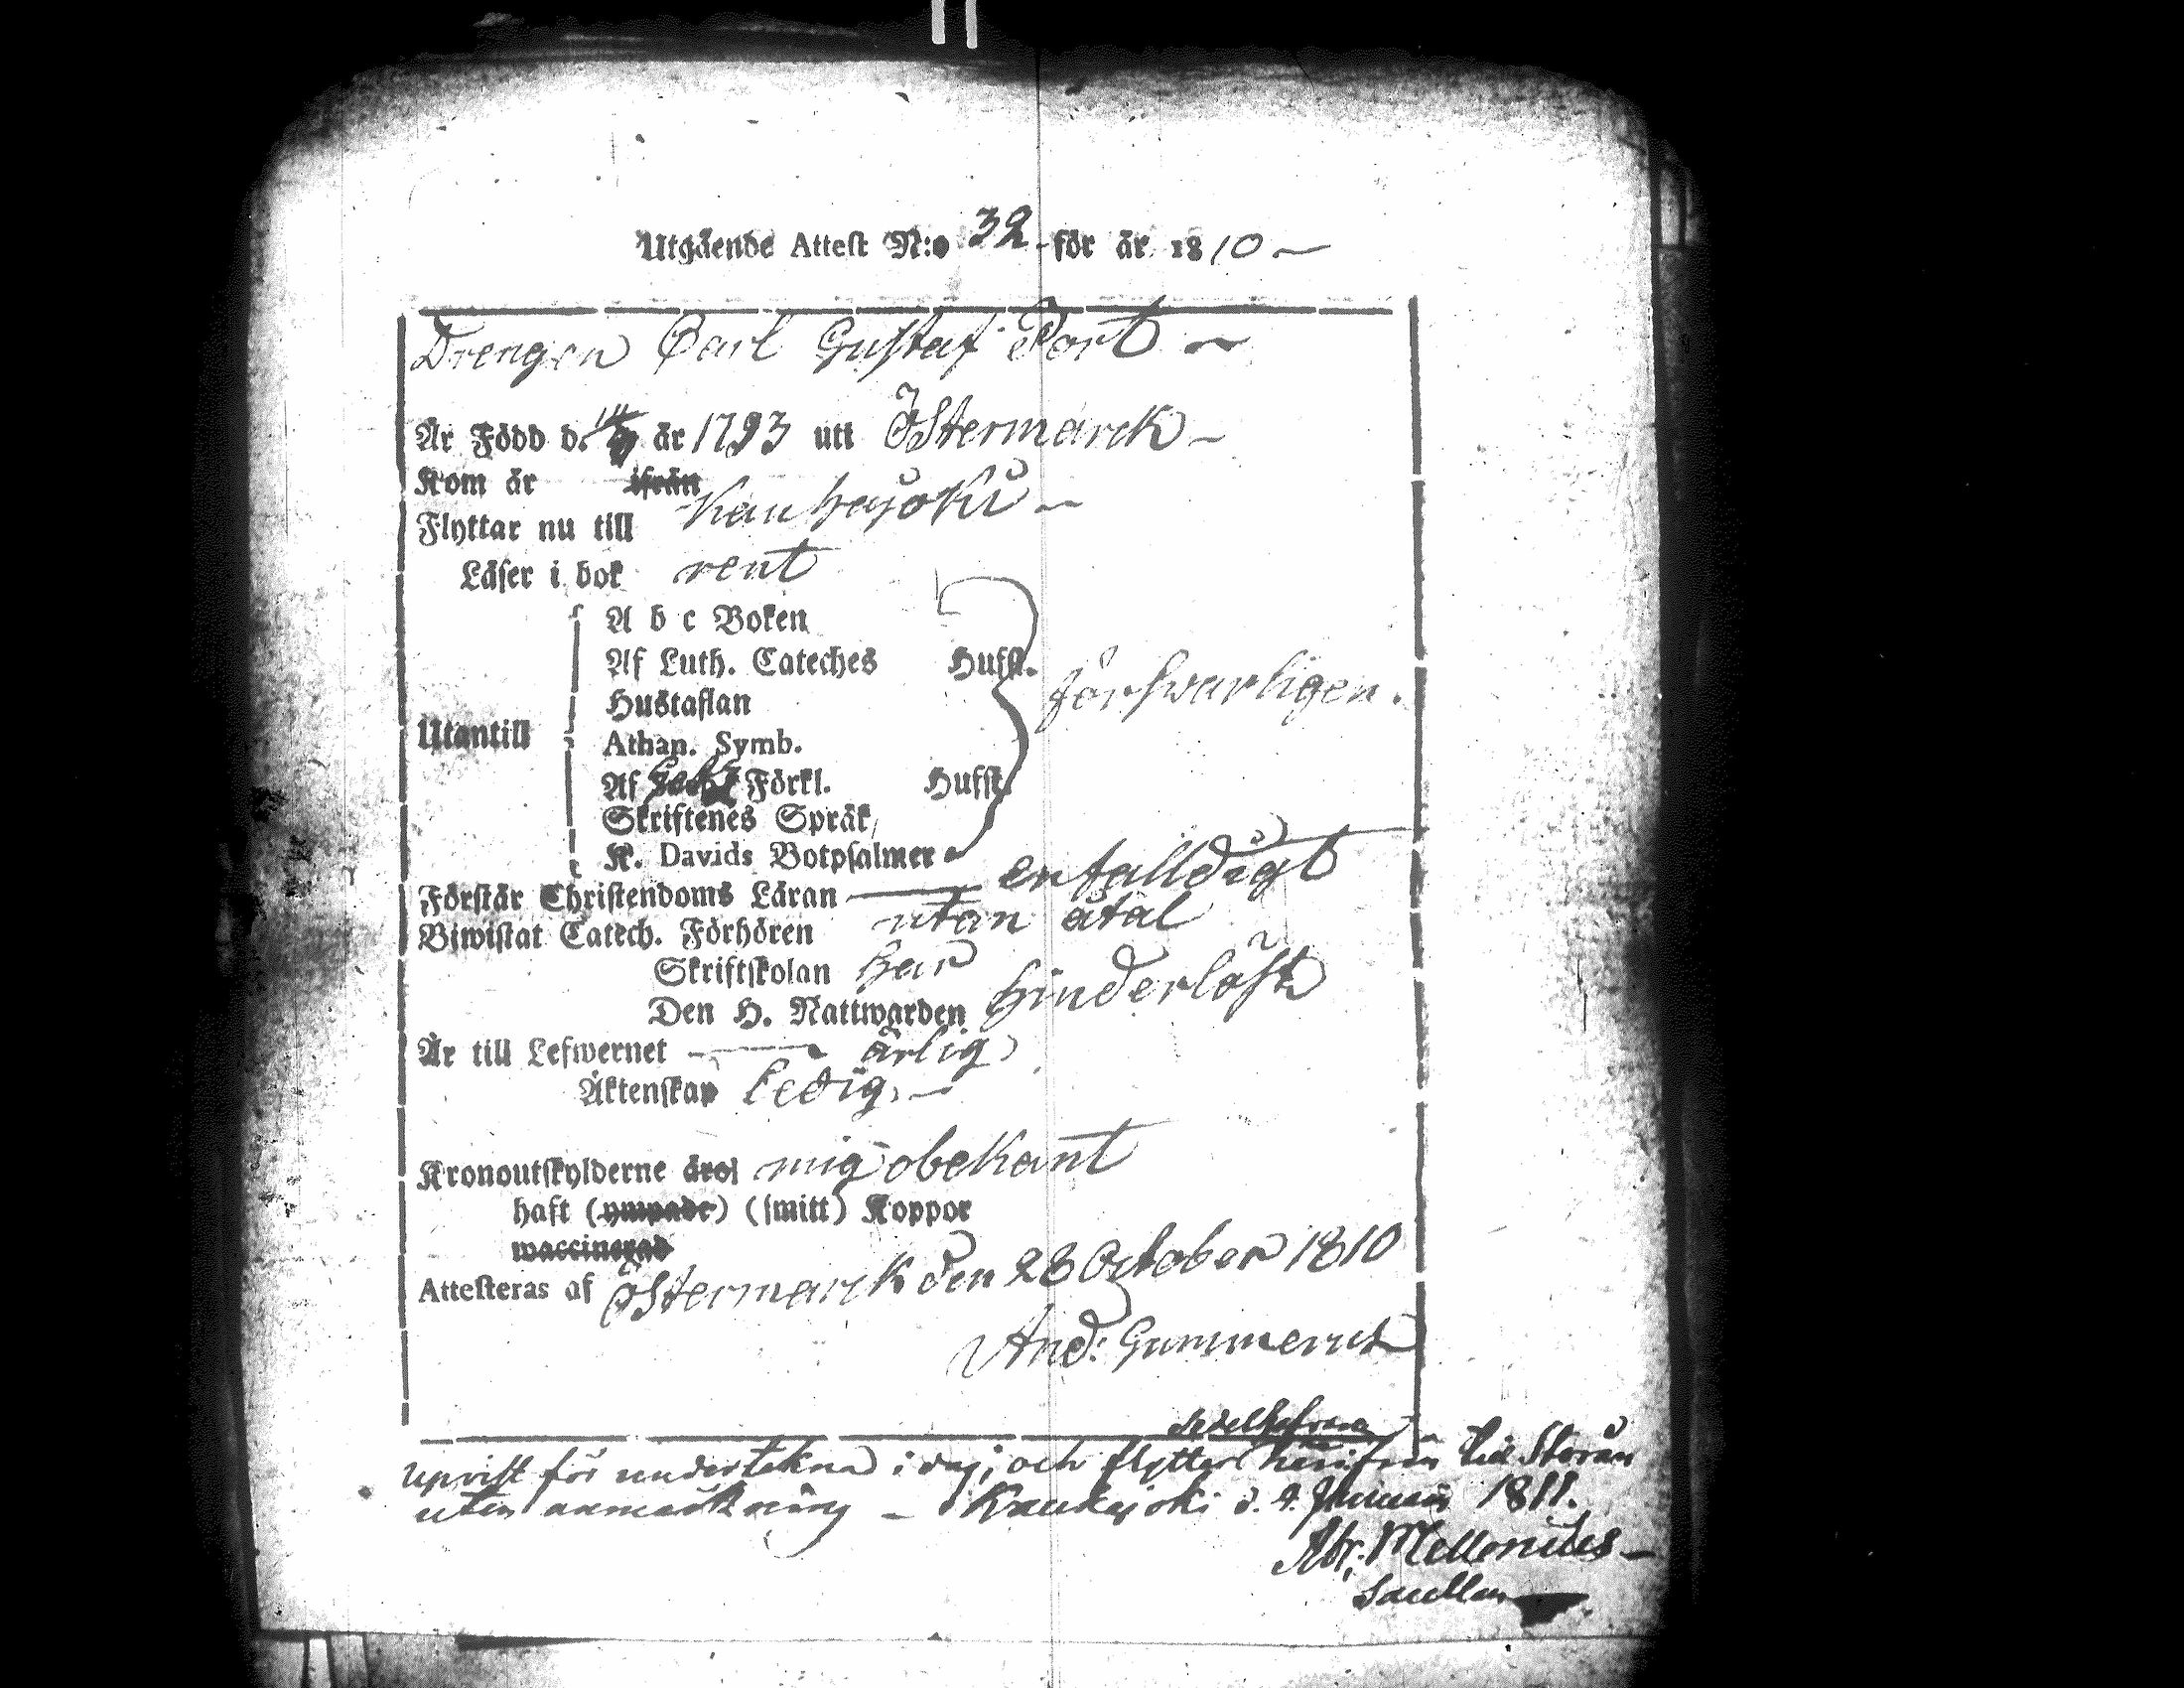 Utgående Attest N:o 32 för år 1810 —
Drengen Carl Gustaf Port —
Är Född d. år 1793 uti Östermarck —
Kom år ifrån
Flyttar nu till Kauhajoki —
Läser i bok rent
A b c Boken
Af Luth. Cateches Hufst.
försvarligen.
Hustaflan
Utantill
Athan. Symb.
Af Förkl. Hufst.
Skriftenes Språk
K. Davids Botpsalmer
Förstår Christendoms Läran — enfalldigt
Biwistat Catech. Förhören utan åtal
Skriftskolan har
Den H. Nattwarden hinderlöst
Är till Lefwernet — ärlig
Äktenskap ledig. —
Kronoutskylderne äro mig obekant
haft (ympade) (smitt) Koppor
waccinerad
Attesteras af Östermarck den 28 October 1810
And: Gummerus
upvist för undertekna i dag; och flyttar härifrån til Storån
utan anmärkning — Kauhajoki d. 4. Januari 1811.
Abr: Mellenius —